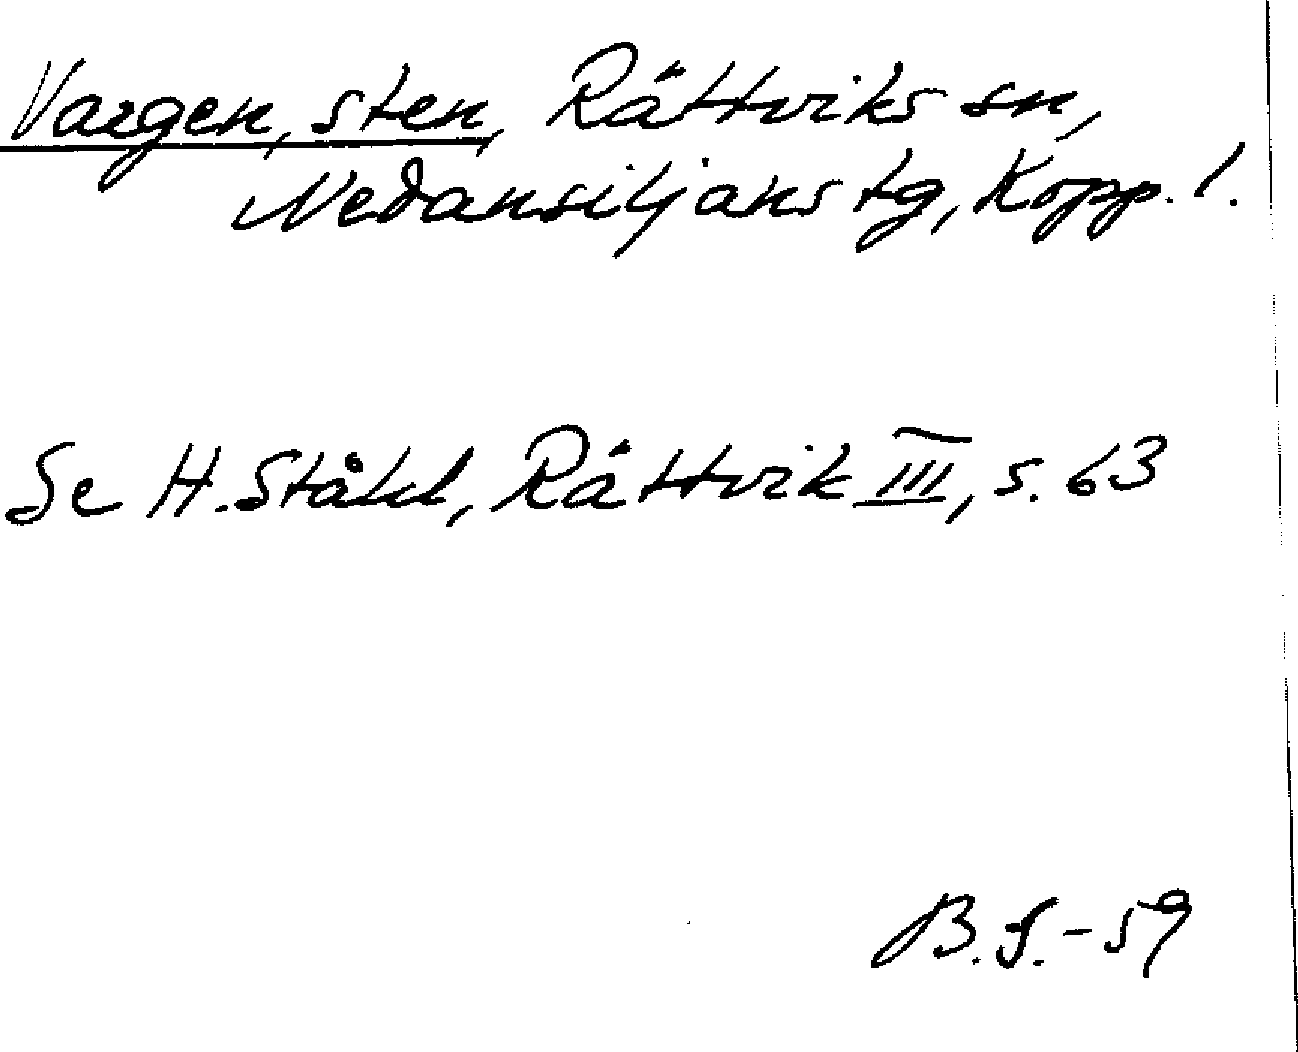 Vargen, sten, Rättviks sn,
Nedansiljans tg, Kopp. l.
Se H. Ståhl, Rättvik III, s. 63
B. S. - 59